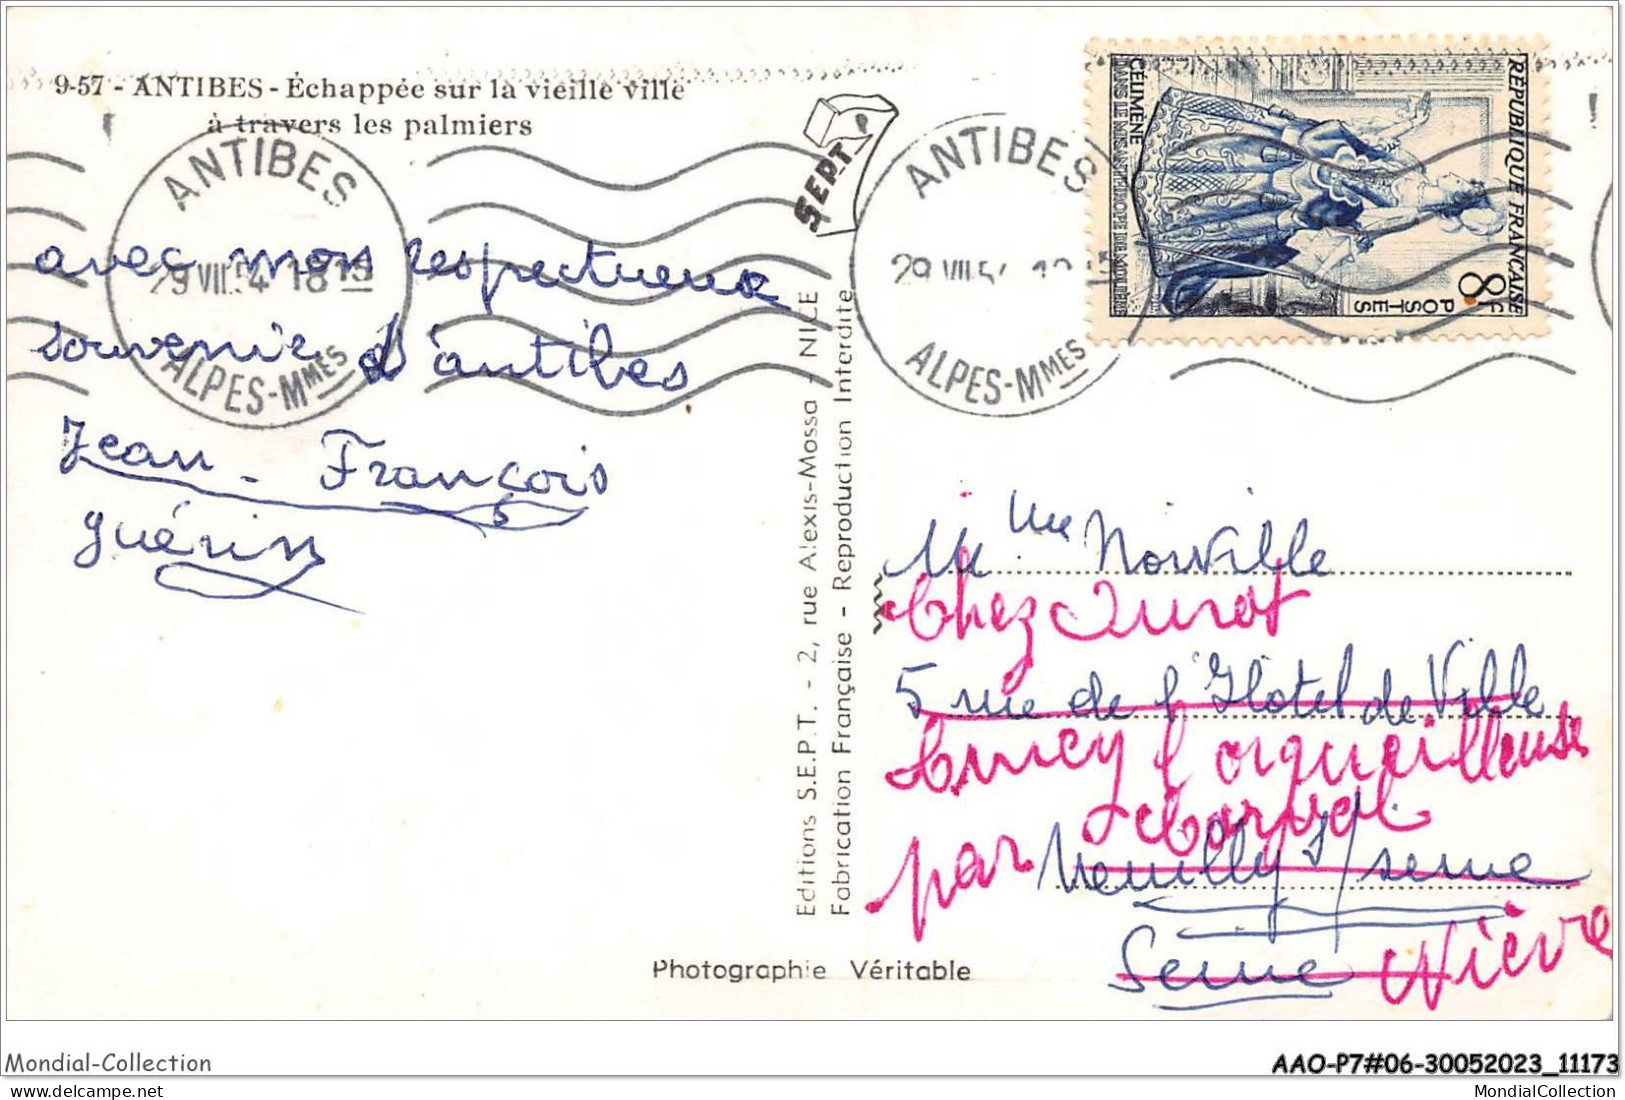 9-57 - ANTIBES - Échappée sur la vieille ville
à travers les palmiers
SEPT
ANTIBES
29 VII.54 18 15
ALPES-MMES
ANTIBES
29 VII.54
ALPES-MMES
REPUBLIQUE FRANCAISE
8F
POSTES
CÉLIMÈNE
DANS LE MISANTHROPE PAR MOLIÈRE
avec mon respectueux
souvenir d'antibes
Jean-François
guérin
Editions S.E.P.T. - 2, rue Alexis-Mossa - NICE
Fabrication Française - Reproduction Interdite
Mme Norville
Chez
5 rue de l'Hotel de Ville
l'orgueilleuse
par
Neuilly s/ seine
Seine Nièvre
Photographie Véritable
Mondial-Collection
AAO-P7#06-30052023_11173
MondialCollection